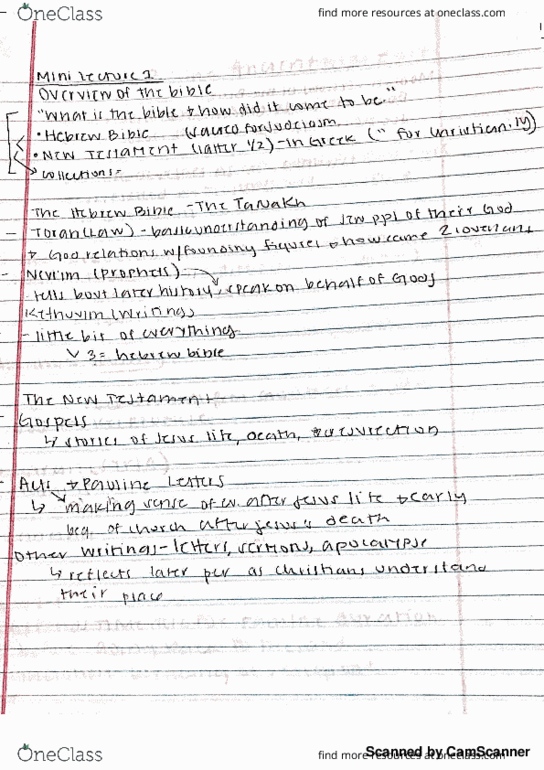 OneClass find more resources at oneclass.com
1
Mini Lecture 1
Overview of the bible
"What is the bible & how did it come to be."
• Hebrew Bible sacred for Judaism
• New Testament (latter 1/2) - in Greek (" for Christian.ity)
collections-
The Hebrew Bible - The Tanakh
- Torah (Law) - basic understanding of Jew ppl of their God
God relations w/ founding figures & how came 2
- Nevi'im (prophets)
- tells bout later history, speak on behalf of God
Kethuvim (writings)
- little bit of everything
3 = hebrew bible
The New Testament
- Gospels
↳ stories of Jesus life, death, & resurrection
- Acts → Pauline Letters
↳ making sense of after Jesus life & early
beg. of church after jesus's death
Other Writings - letters, sermons, apocalypse
↳ reflects later per as Christians understand
their place
OneClass find more resources at oneclass.com
Scanned by CamScanner